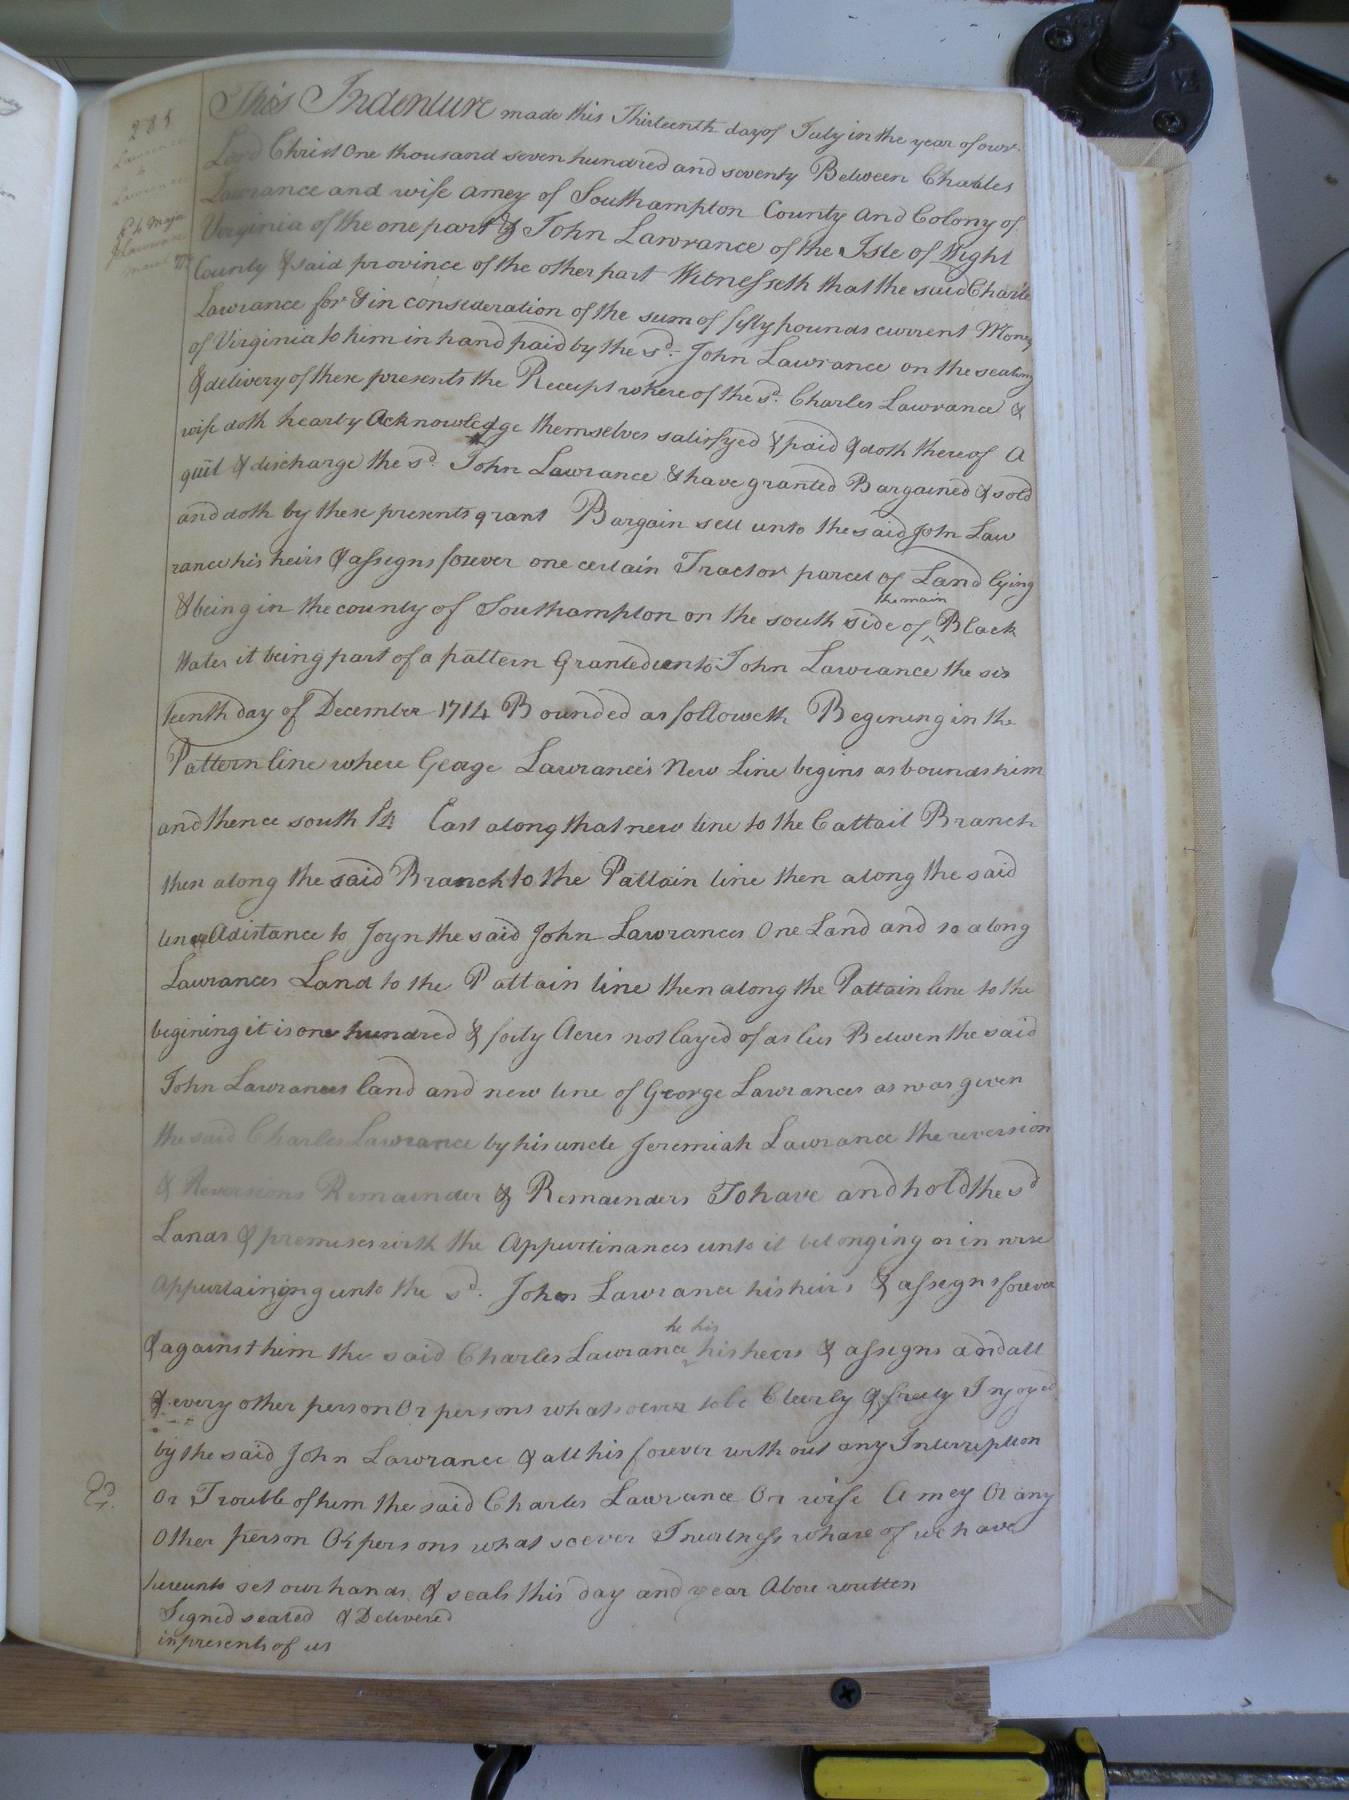 285
Lawrance
to
Lawrance
This Indenture made this Thirteenth day of July in the year of our
Lord Christ One thousand seven hundred and seventy Between Charles
Lawrance and wife amey of Southampton County and Colony of
Virginia of the one part & John Lawrance of the Isle of Wight
County & said province of the other part Witnesseth that the said Charle
Lawrance for & in consideration of the sum of fifty pounds current Money
of Virginia to him in hand paid by the sd. John Lawrance on the sealing
& delivery of these presents the Receipt where of the sd. Charles Lawrance &
wife doth hearby Acknowledge themselves satisfyed & paid & doth there of A
quit & discharge the sd. John Lawrance & have granted Bargained & sold
and doth by these presents grant Bargain sell unto the said John Law
rance his heirs & assigns forever one certain Tract or parcel of Land lying
& being in the county of Southampton on the south side of the main Black
Water it being part of a pattern Granted unto John Lawrance the six
teenth day of December 1714 Bounded as followeth Begining in the
Pattern line where George Lawrance's New Line begins as bounds him
and thence south East along that new line to the Cattail Branch
then along the said Branch to the Pattain line then along the said
line Adistance to Joyn the said John Lawrances One Land and so along
Lawrances Land to the Pattain line then along the Pattain line to the
begining it is one hundred & forty Acres not layed of as lies Betwen the said
John Lawrances land and new line of George Lawrances as was given
the said Charles Lawrance by his uncle Jeremiah Lawrance the reversion
& Reversions Remainder & Remainders To have and hold the sd
Lands & premises with the Appurtinances unto it belonging or in wise
Appurtaining unto the sd. John Lawrance his heirs & assigns forever
& against him the said Charles Lawrance he his his heirs & assigns and all
& every other person Or persons whatsoever to be Clearly & freely Injoyed
by the said John Lawrance & all his forever with out any Interruption
Or Trouble of him the said Charles Lawrance Or wife Amey Or any
Other person Or persons what soever In witness whare of we have
hereunto set our hands & seals this day and year Above written
Signed sealed & Delivered
in presents of us